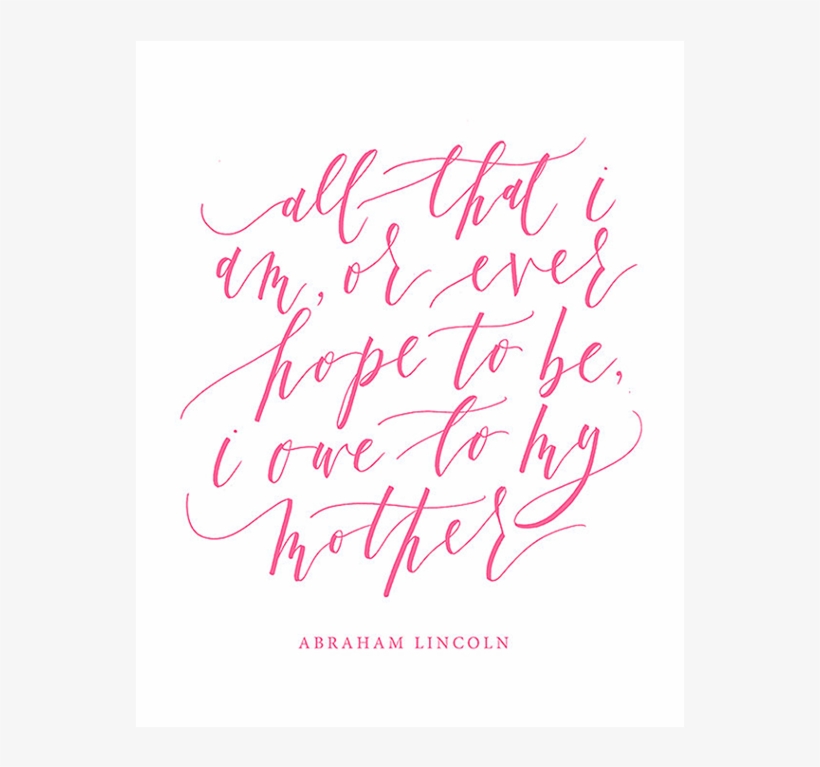 all that i
am, or ever
hope to be,
i owe to my
mother
ABRAHAM LINCOLN